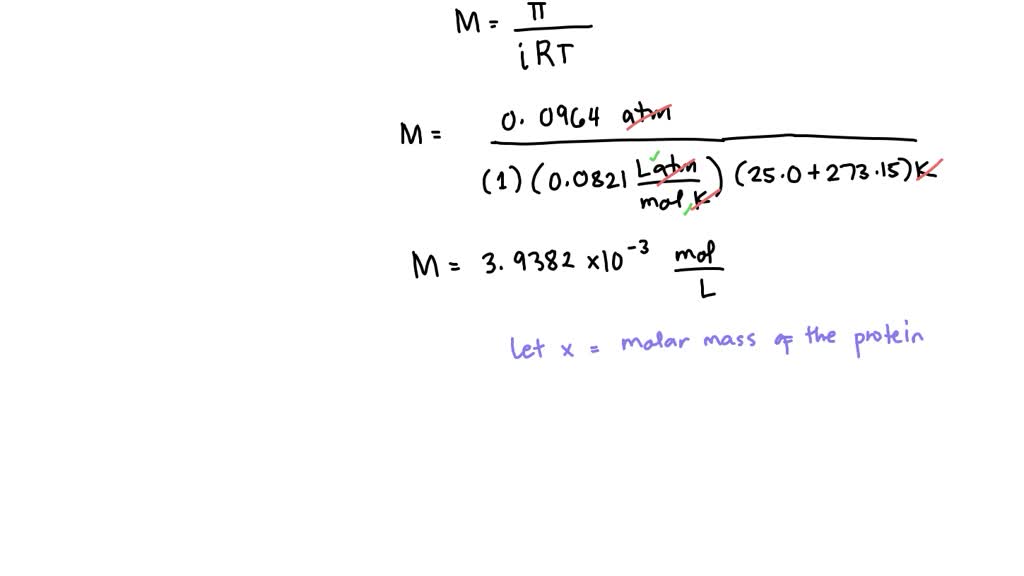 M = π / iRT
M = 0.0964 atm / (1) (0.0821 L atm / mol K) (25.0 + 273.15) K
M = 3.9382 × 10⁻³ mol / L
Let x = molar mass of the protein